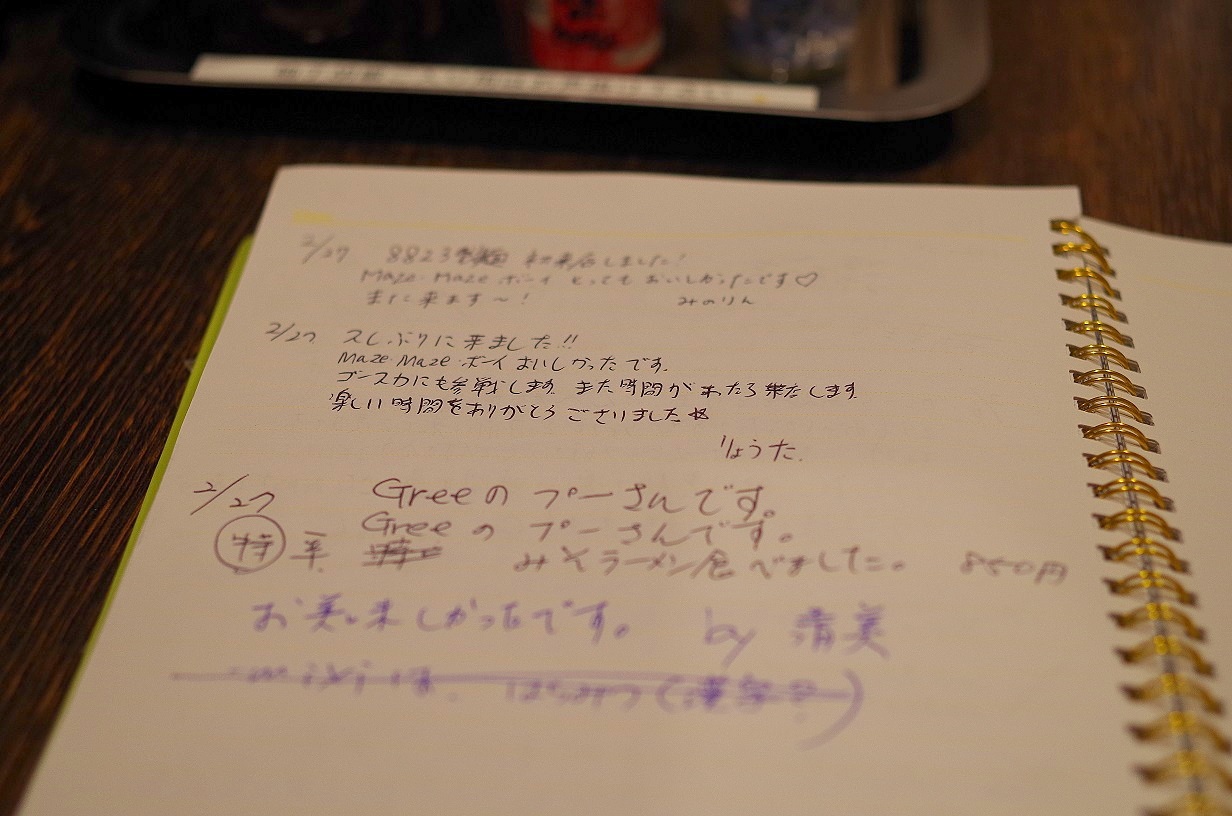 2/27 8823製麺 初来店しました!
Maze Mazeボーイ とっても おいしかったです♡
また来ます〜! みのりん
2/27 久しぶりに来ました!!
Maze Mazeボーイ おいしかったです。
ゴースカにも参戦します。また時間があたら来店します。
楽しい時間をありがとうございました☆
りょうた.
2/27 Greeの プーさんです。
Greeの プーさんです。
特 平 みそラーメン食べました。 850円
お美味しかったです。 by 清美
mixiは、はちみつ(漢字